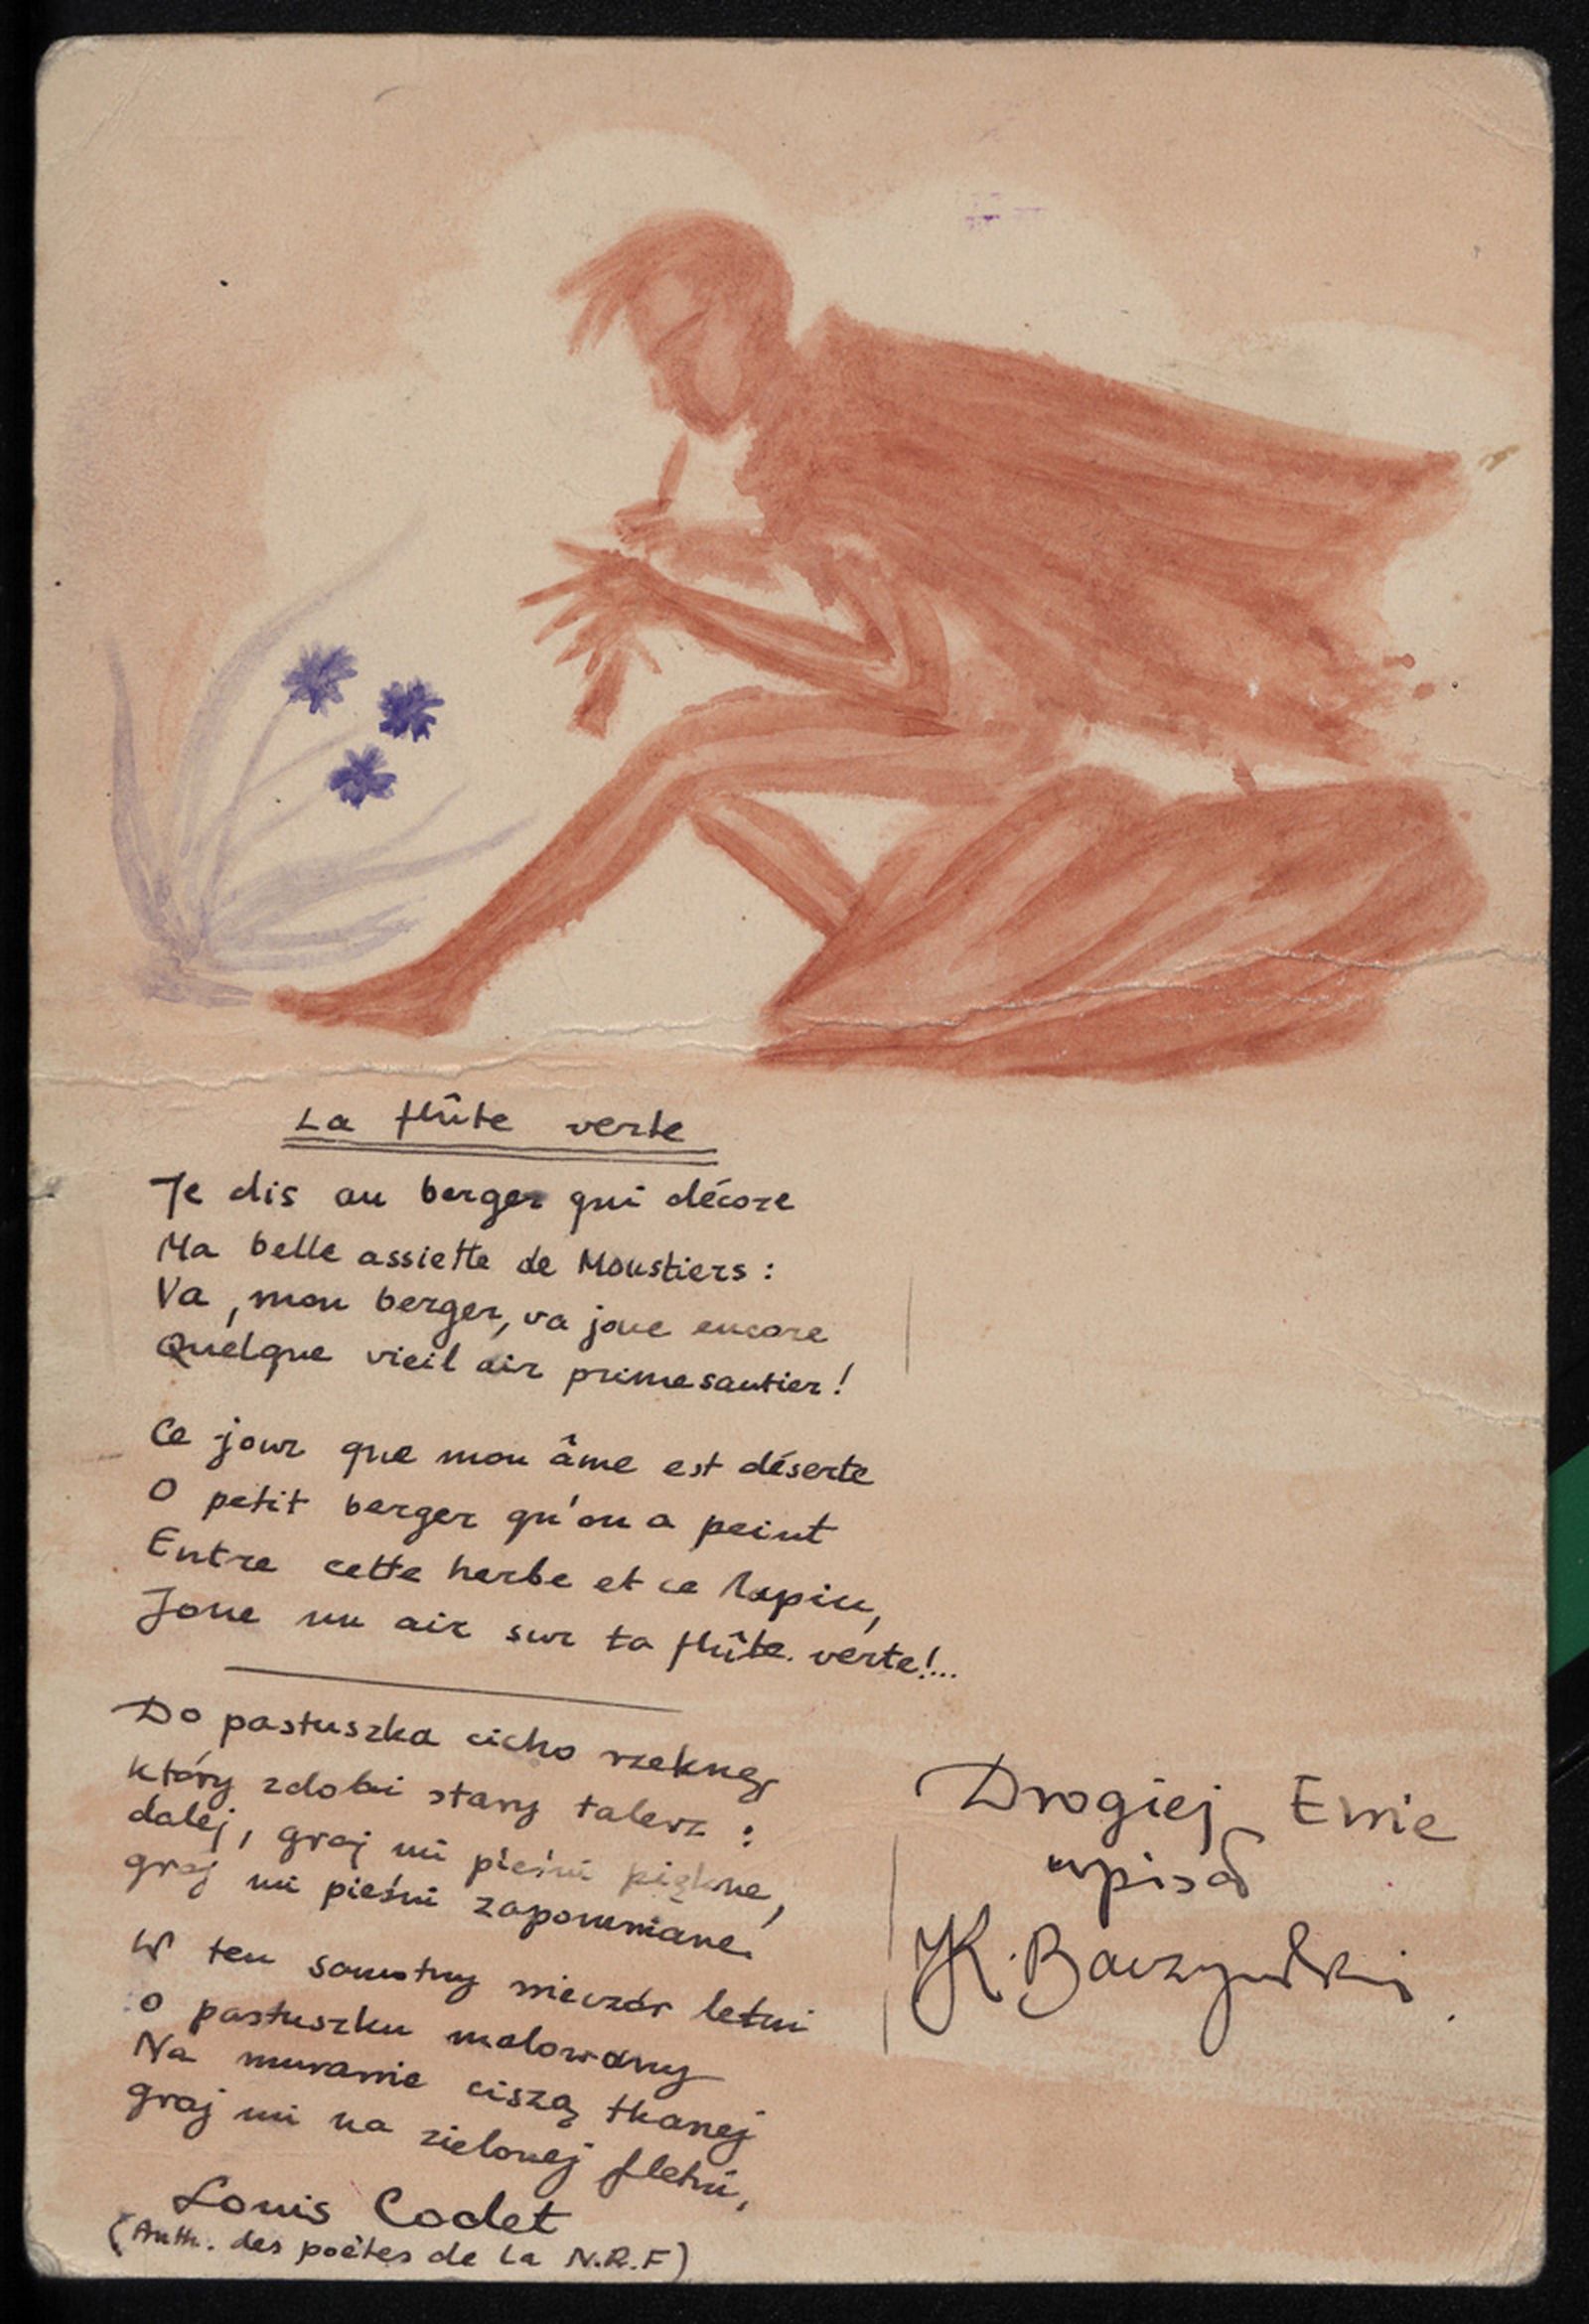 La flûte verte
Je dis au berger qui décore
Ma belle assiette de Moustiers :
Va, mon berger, va joue encore
Quelque vieil air primesautier !
Ce jour que mon âme est déserte
O petit berger qu'on a peint
Entre cette herbe et ce lapin,
Joue un air sur ta flûte verte!...
Do pastuszka cicho rzeknę,
który zdobi stary talerz :
dalej, graj mi pieśni piękne,
graj mi pieśni zapomniane.
W ten samotny wieczór letni
o pastuszku malowany
Na murawie ciszą tkanej
graj mi na zielonej fletni,
Louis Codet
(Anth. des poètes de la N.R.F)
Drogiej Ewie
wpisał
K. Baczyński.